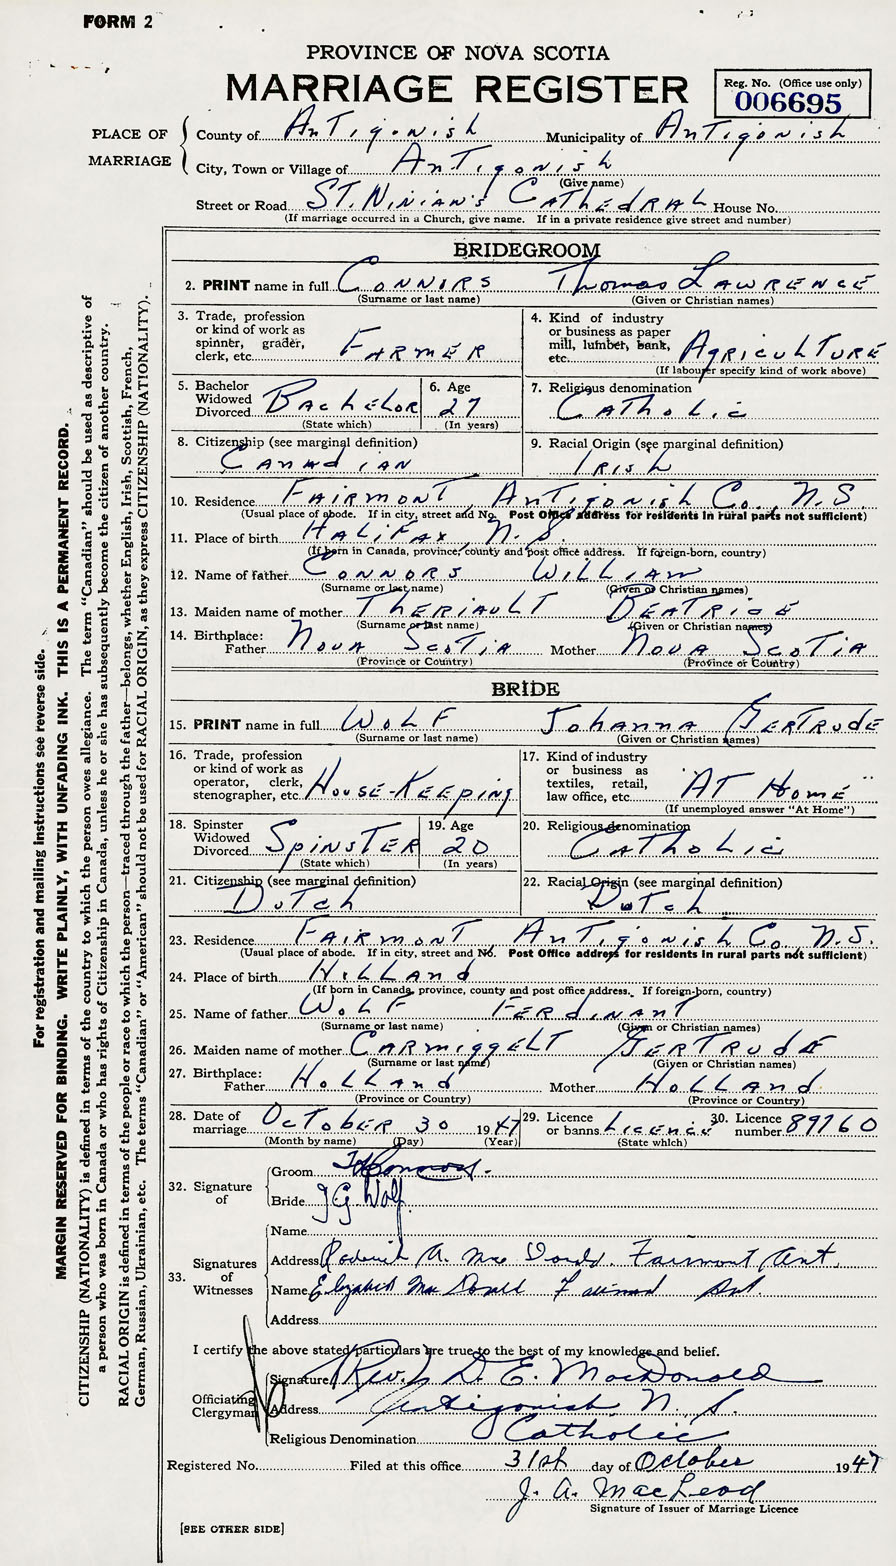 FORM 2
PROVINCE OF NOVA SCOTIA
MARRIAGE REGISTER
Reg. No. (Office use only)
006695
PLACE OF MARRIAGE
County of Antigonish Municipality of Antigonish
City, Town or Village of Antigonish
(Give name)
Street or Road St. Ninian's Cathedral House No.
(If marriage occurred in a Church, give name. If in a private residence give street and number)
BRIDEGROOM
2. PRINT name in full Connors Thomas Lawrence
(Surname or last name) (Given or Christian names)
3. Trade, profession or kind of work as spinner, grader, clerk, etc. Farmer
4. Kind of industry or business as paper mill, lumber, bank, etc. Agriculture
(If labourer specify kind of work above)
5. Bachelor Widowed Divorced Bachelor
(State which)
6. Age 27
(In years)
7. Religious denomination
Catholic
8. Citizenship (see marginal definition)
Canadian
9. Racial Origin (see marginal definition)
Irish
10. Residence Fairmont, Antigonish Co., N.S.
(Usual place of abode. If in city, street and No. Post Office address for residents in rural parts not sufficient)
11. Place of birth Halifax, N.S.
(If born in Canada, province, county and post office address. If foreign-born, country)
12. Name of father Connors William
(Surname or last name) (Given or Christian names)
13. Maiden name of mother Theriault Beatrice
(Surname or last name) (Given or Christian names)
14. Birthplace:
Father Nova Scotia Mother Nova Scotia
(Province or Country) (Province or Country)
BRIDE
15. PRINT name in full Wolf Johanna Gertrude
(Surname or last name) (Given or Christian names)
16. Trade, profession or kind of work as operator, clerk, stenographer, etc. House-Keeping
17. Kind of industry or business as textiles, retail, law office, etc. "At Home"
(If unemployed answer "At Home")
18. Spinster Widowed Divorced Spinster
(State which)
19. Age 20
(In years)
20. Religious denomination
Catholic
21. Citizenship (see marginal definition)
Dutch
22. Racial Origin (see marginal definition)
Dutch
23. Residence Fairmont, Antigonish Co., N.S.
(Usual place of abode. If in city, street and No. Post Office address for residents in rural parts not sufficient)
24. Place of birth Holland
(If born in Canada, province, county and post office address. If foreign-born, country)
25. Name of father Wolf Ferdinant
(Surname or last name) (Given or Christian names)
26. Maiden name of mother Carmiggelt Gertrude
(Surname or last name) (Given or Christian names)
27. Birthplace:
Father Holland Mother Holland
(Province or Country) (Province or Country)
28. Date of marriage October 30 1947
(Month by name) (Day) (Year)
29. Licence or banns Licence
(State which)
30. Licence number 89760
32. Signature of
Groom
Bride J G Wolf
33. Signatures of Witnesses
Name
Address Roderick A. MacDonald. Fairmont Ant.
Name Elizabeth MacDonald Fairmont Ant.
Address
I certify the above stated particulars are true to the best of my knowledge and belief.
Officiating Clergyman
Signature Rev. D. E. MacDonald
Address Antigonish N. S.
Religious Denomination Catholic
Registered No. Filed at this office 31st day of October 1947
J. A. MacLeod
Signature of Issuer of Marriage Licence
[SEE OTHER SIDE]
For registration and mailing instructions see reverse side.
MARGIN RESERVED FOR BINDING. WRITE PLAINLY, WITH UNFADING INK. THIS IS A PERMANENT RECORD.
CITIZENSHIP (NATIONALITY) is defined in terms of the country to which the person owes allegiance. The term "Canadian" should be used as descriptive of
a person who was born in Canada or who has rights of Citizenship in Canada, unless he or she has subsequently become the citizen of another country.
RACIAL ORIGIN is defined in terms of the people or race to which the person—traced through the father—belongs, whether English, Irish, Scottish, French,
German, Russian, Ukrainian, etc. The terms "Canadian" or "American" should not be used for RACIAL ORIGIN, as they express CITIZENSHIP (NATIONALITY).